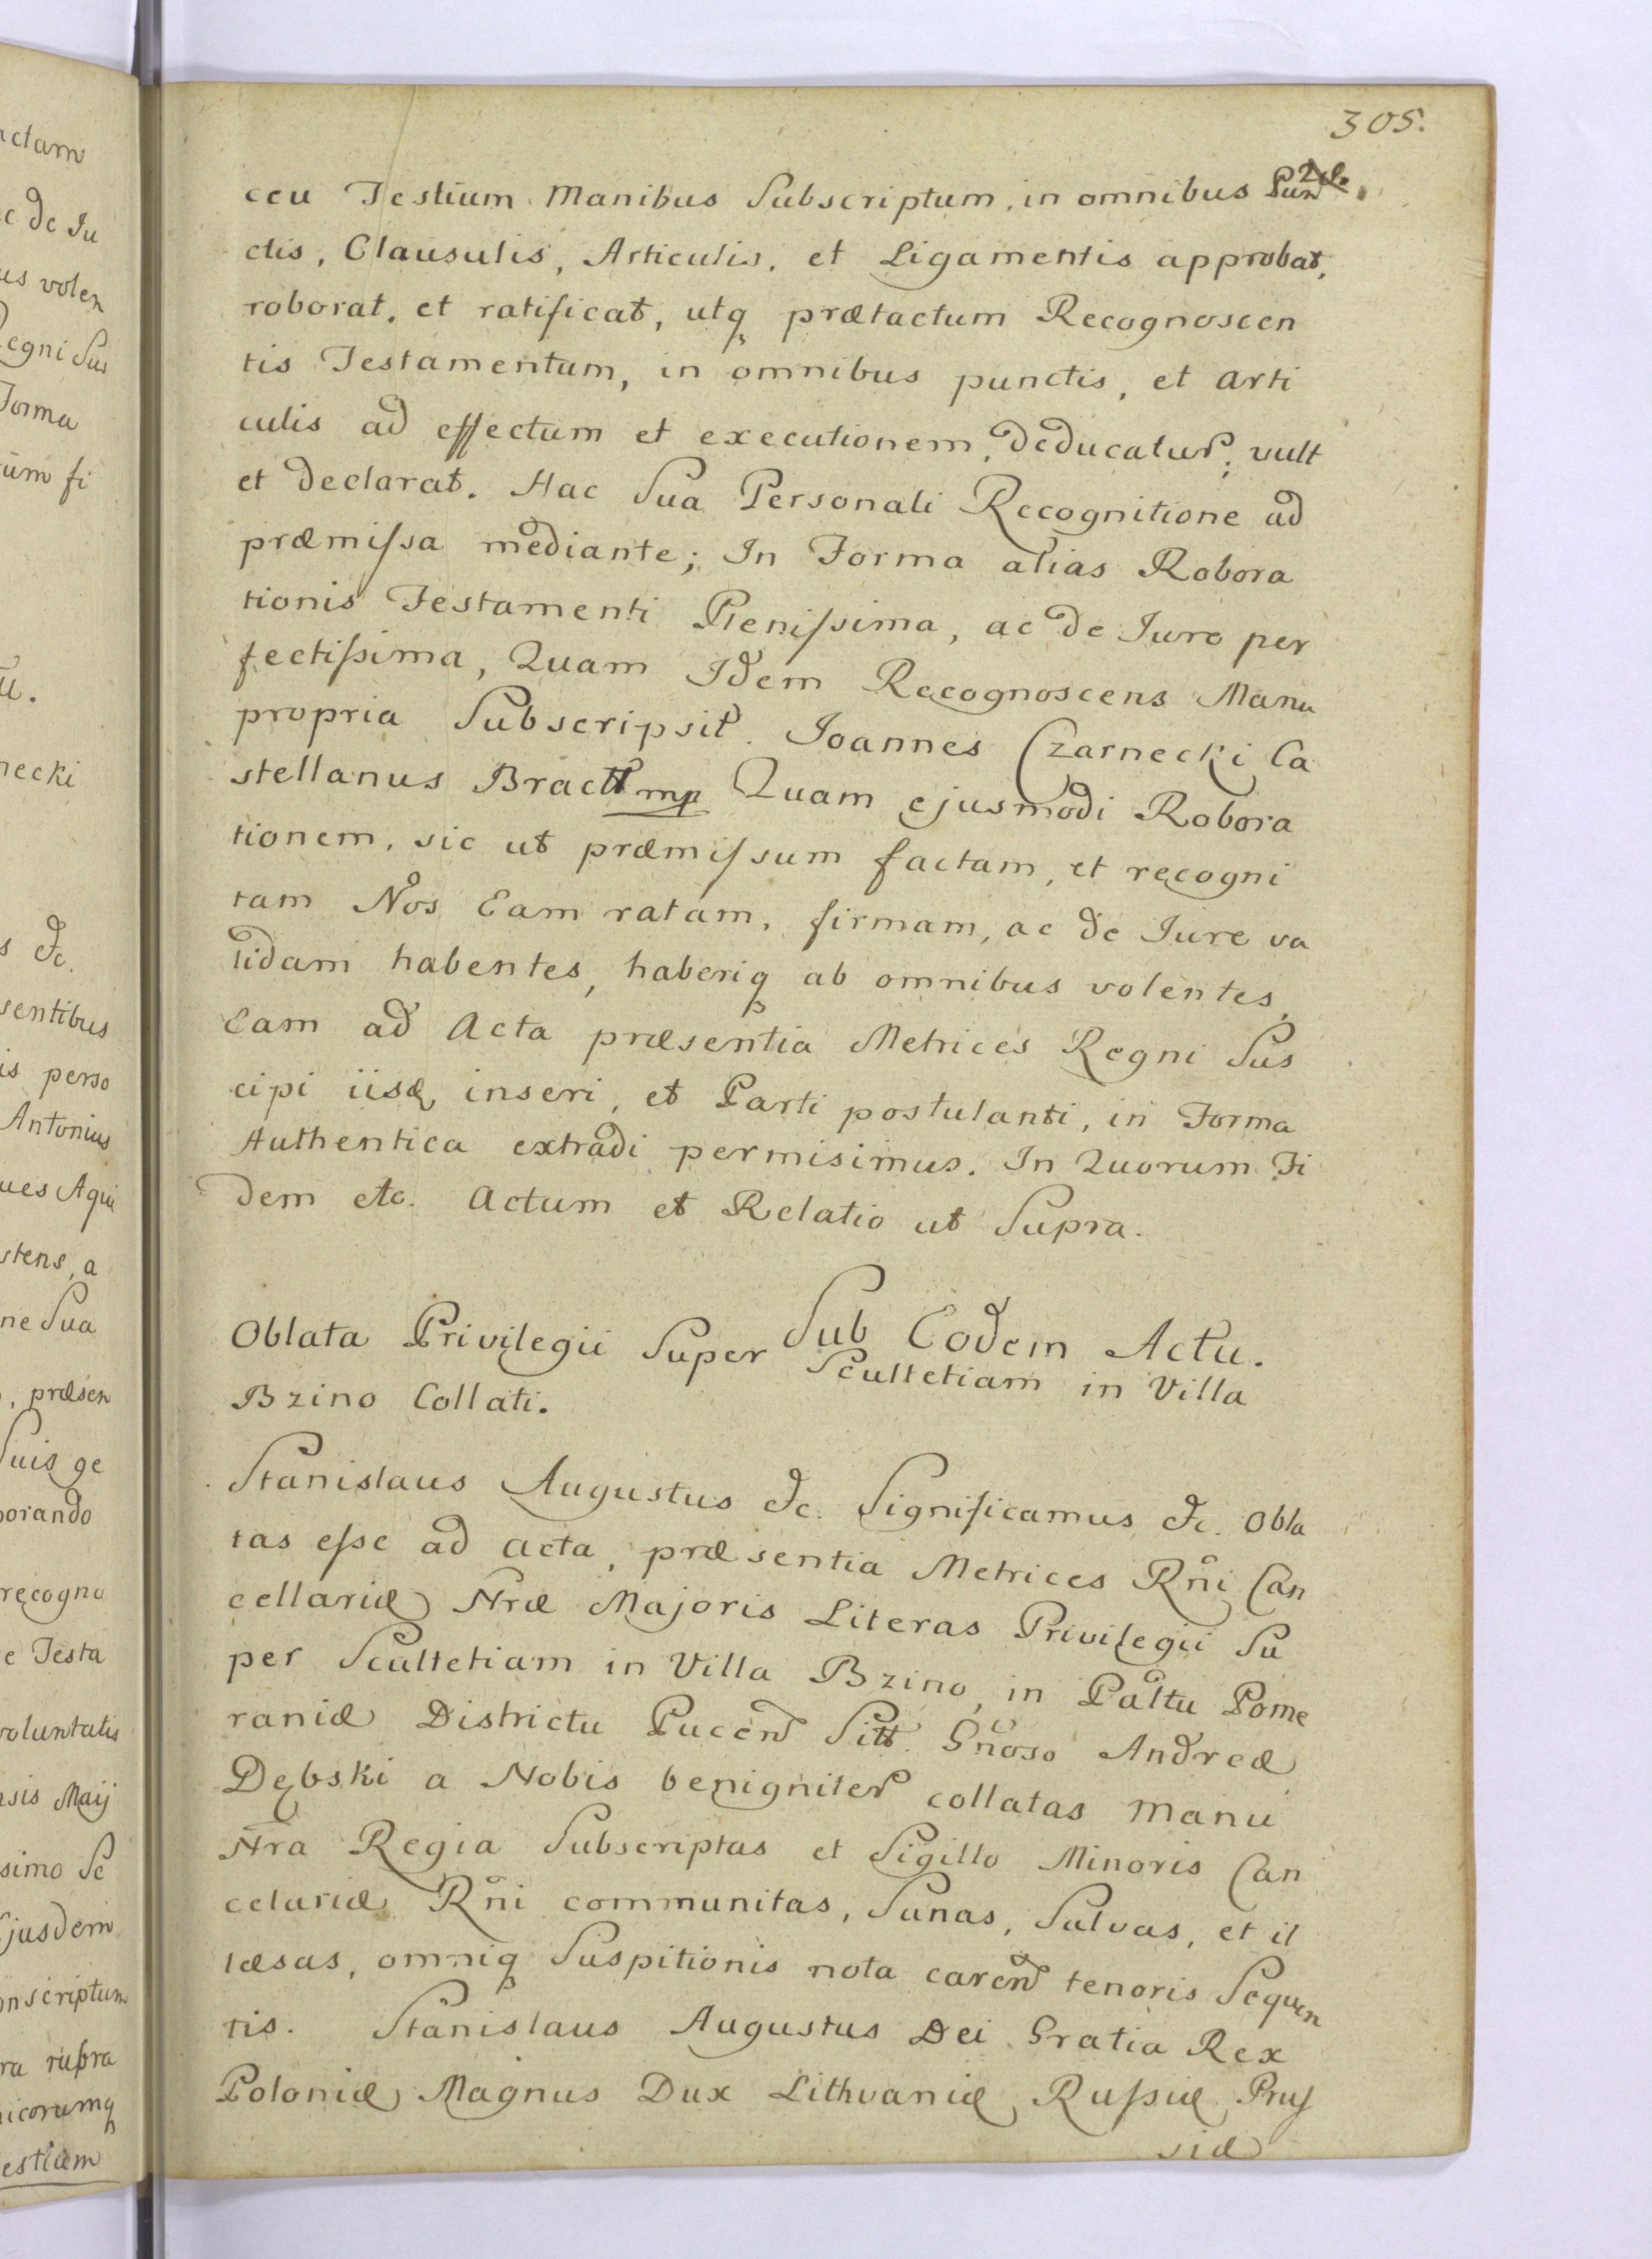 305.
ceu Testium Manibus Subscriptum, in omnibus Pun
ctis, Clausulis, Articulis, et Ligamentis approbat,
roborat, et ratificat, utq prætactum Recognoscen
tis Testamentum, in omnibus punctis, et Arti
culis ad effectum et executionem, deducatur, vult
et declarat. Hac Sua Personali Recognitione ad
præmissa mediante; In Forma alias Robora
tionis Testamenti Plenissima, ac de Jure per
fectissima, Quam Idem Recognoscens Manu
propria Subscripsit. Joannes Czarnecki Ca
stellanus Bractt mp Quam ejusmodi Robora
tionem, sic ut præmissum factam, et recogni
tam Nos Eam ratam, firmam, ac de Jure va
lidam habentes, haberiq ab omnibus volentes,
Eam ad Acta præsentia Metrices Regni Sus
cipi iisq inseri, et Parti postulanti, in Forma
Authentica extradi permisimus. In Quorum Fi
dem etc. Actum et Relatio ut Supra.
Sub Eodem Actu.
Oblata Privilegii Super Scultetiam in Villa
Bzino Collati.
Stanislaus Augustus &c. Significamus &c. Obla
tas esse ad acta, præsentia Metrices Rni Can
cellariæ Nræ Majoris Literas Privilegii Su
per Scultetiam in Villa Bzino, in Paltu Pome
raniæ Districtu Pucen Sitt. Gnoso Andreæ
Dębski a Nobis benigniter collatas Manu
Nra Regia Subscriptas et Sigillo Minoris Can
celariæ Rni communitas, Sanas, Salvas, et il
læsas, omniq Suspitionis nota caren tenoris Sequen
tis. Stanislaus Augustus Dei Gratia Rex
Poloniæ, Magnus Dux Lithvaniæ, Russiæ, Prus
siæ